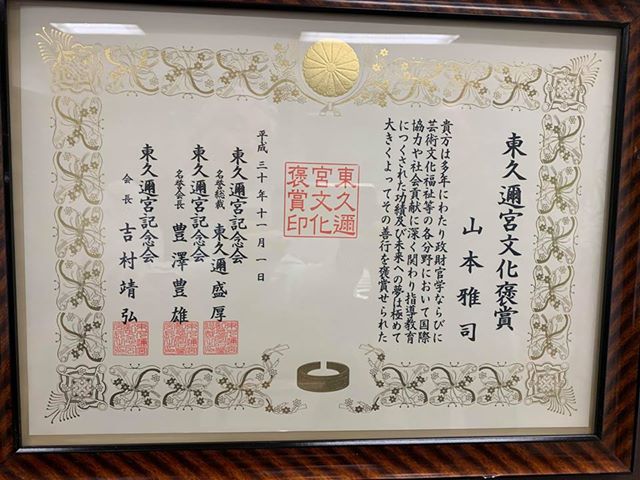 東久邇宮文化褒賞
山本雅司
貴方は多年にわたり政財官学ならびに
芸術文化福祉等の各分野において国際
協力や社会貢献に深く関わり指導教育
につくされた功績及び未来への夢は極めて
大きくよってその善行を褒賞せられた
東久邇
宮文化
褒賞印
平成三十年十一月一日
東久邇宮記念会
名誉総裁 東久邇盛厚
東久邇宮記念会
名誉会長 豊澤豊雄
東久邇宮記念会
会長 吉村靖弘